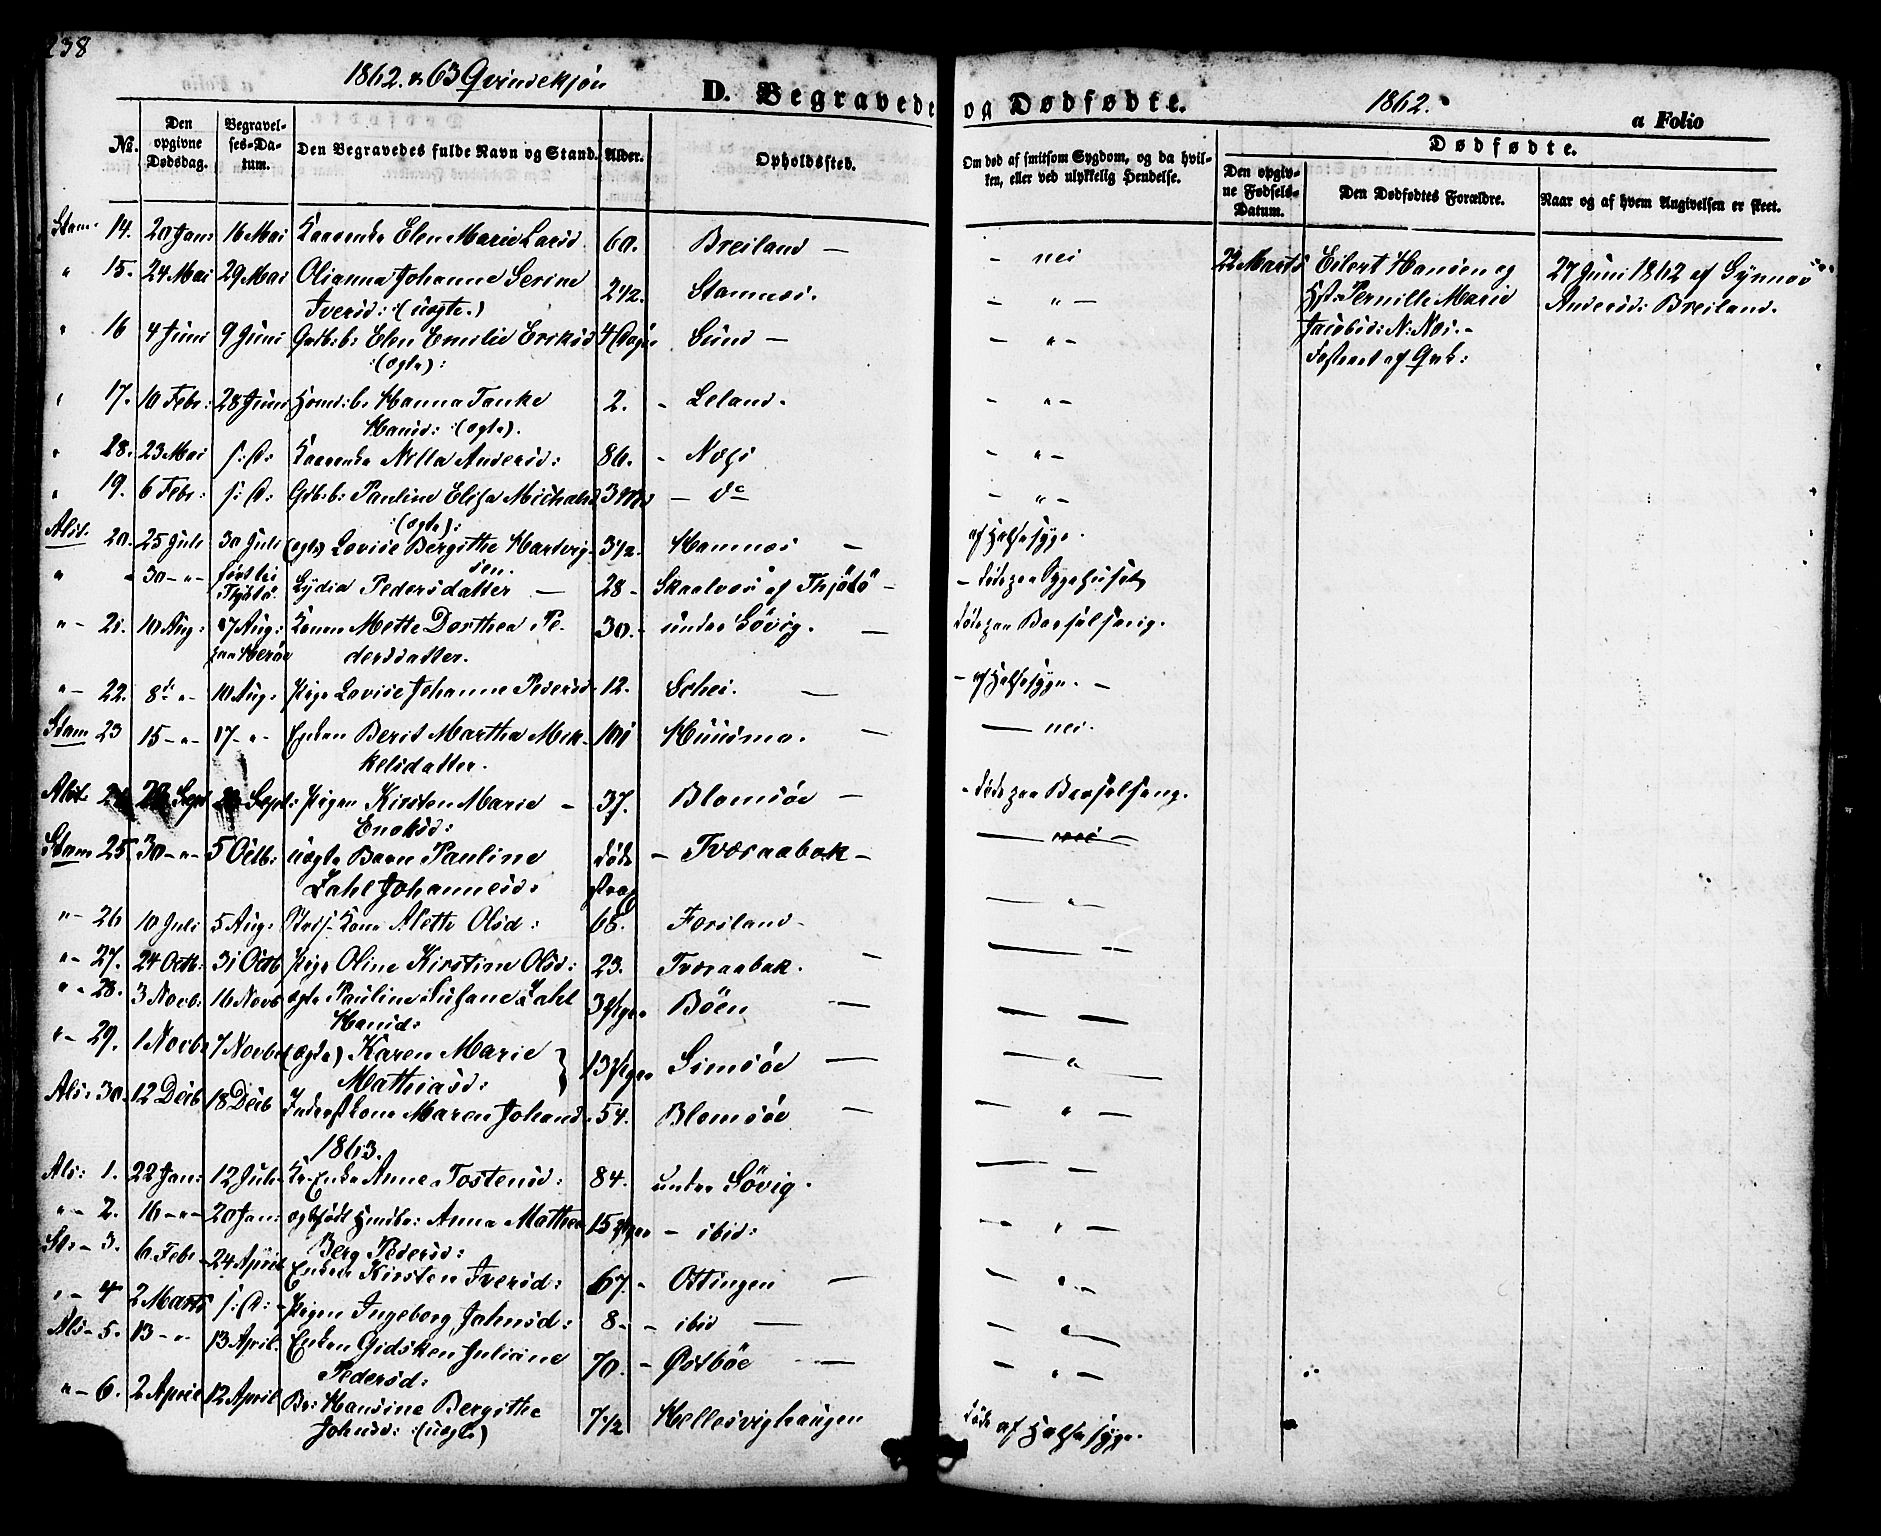 238
1862 & 63 Qvindekjøn
D. Begravede og Dødfødte.
1862.
a Folio
No.
Den opgivne Dødsdag.
Begravelses-Datum.
Den Begravedes fulde Navn og Stand.
Alder.
Opholdssted.
Om død af smitsom Sygdom, og da hvilken, eller ved ulykkelig Hendelse.
Dødfødte.
Den opgivne Fødsels-Datum.
Den Dødfødtes Forældre.
Naar og af hvem Angivelsen er skeet.
Stam: 14. 20 Jan: 16 Mai Elen Marie Larsd 60. Breiland — - nei
22 Marts Eilert Hansen og
Pernille Marie
Jacobsd: N: Næs.-
27 Juni 1862 af
Andersd: Breiland.
" 15. 24 Mai 29 Mai Olianna Johanne Serine 2 1/2. Stamnæs. - " -
Iversd: (uægte.)
" 16 4 Juni 9 Juni Gdb:b: Elen Emilie Eriksd 4 Dage Sund — - " -
:(ægte):
" 17. 10 Febr: 28 Juni Huusm:b: Hanna Tanke 2. - Leland. - " -
Hansd: :(ægte).
" 18. 23 Mai s: D: Nella Andersd: 86. - Næs - " -
" 19. 6 Febr: s: D: Gdb:b: Pauline Elisa Michaelsd 3 - dº - " -
:(ægte):
Alst. 20. 25 Juli 30 Juli (ægte) Lovise Bergithe Hartvig- 3 1/2. Hamnæs — af Halssyge.
sen.
" " 30 - " - Lydia Pedersdatter — 28 - Skaalvær af Thjøtø - - døde paa Sygehuset
" - 21. 10 Aug: 17 Aug: Konen Mette Dorthea Pe- 30. - under Søvig. — døde paa Barselseng.
paa Herøe dersdatter.
" - 22. 8de " - 10 Aug: Pige Lovise Johanne Pedersd. 12. Schei. — - af Halssyge. -
Stam 23 15 - " - 17 - " - Enken Berit Martha Mek- 101 Huusmo. — — nei.
kelsdatter.
Alst. Sept Sept: Pigen Kirsten Marie - 37. Blomsøe — - døde paa Barselseng.
Enoksd:
Stam 25. 30 - " - 5 Octb: uægte Barn Pauline døde strax - Tværaabak - — nei —
Zahl Johannesd:
" - 26 10 Juli 5 Aug: Kone Alette Olsd: 68. Forsland - — " —
" - 27. 24 Octb: 31 Octb Pige Oline Kirstine Olsd: 23. Tværaabak. —
" - 28. 3 Novb: 16 Novb ægte Pauline Susane Zahl 3 Uger Bøen —
Hansd:
" - 29. 1 Novb: 7 Novbr (ægte) Karen Marie 13 Uger Simsøe — — " —
Mathiasd:
Als: 30. 12 Decb 18 Decb Inderst Kone Maren Johansd 54. Blomsøe — — " —
1863.
Als: 1. 22 Jan: 12 Juli Enke Anne Tostensd: 84. under Søvig.
" - 2. 16 - " - 20 Jan: Anna Mathea 15 Uger - ibid:
Berg Pedersd:
St: - 3. 6 Febr 24 April Enken Kirsten Iversd: 67. - Ottingen — " -
" - 4 2 Marts s: D: - Pigen Ingeborg Johnsd: 8 - - ibid —
Als - 5. 13 - " - 13 April. Enken Gidsken Juliane 70. - Østbøe — - " -
Pedersd:
" - 6. 2 April 12 April Br: Hansine Bergithe 7 1/2 Hellesvighaugen døde af Halssyge.
Johnsd: :(uægte)